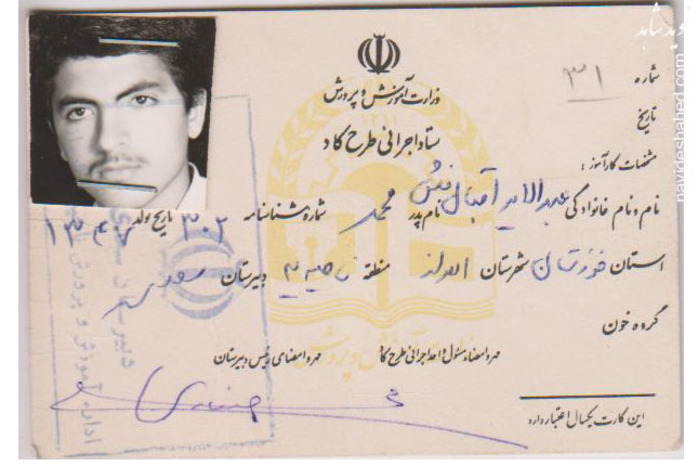 نوید شاهد
navideshahed.com
وزارت آموزش و پرورش
ستاد اجرائی طرح کاد
شماره ۳۱
تاریخ
مشخصات کارآموز :
نام و نام خانوادگی عبدالامیر آقبال نام پدر محمد شماره شناسنامه ۳۰۲ تاریخ تولد ۱۳۴۷
استان خوزستان شهرستان اهواز منطقه ناحیه ۳ دبیرستان
گروه خون
مهر و امضاء مسئول واحد اجرائی طرح کاد مهر و امضای رئیس دبیرستان
این کارت یکسال اعتبار دارد
دبیرستان
اداره آموزش و پرورش